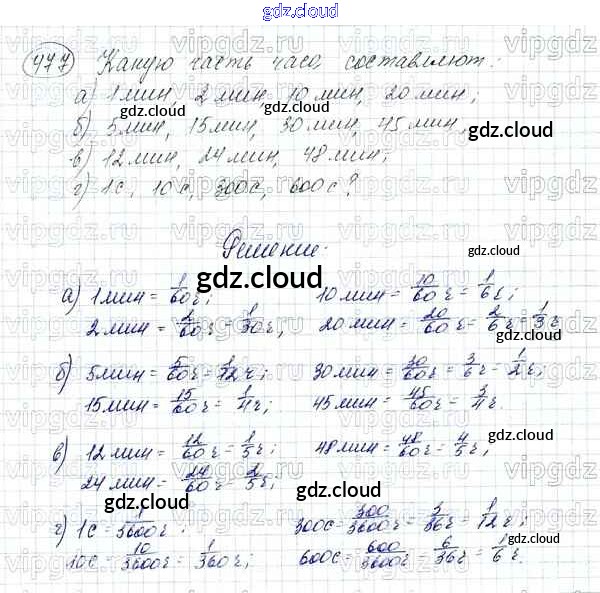 gdz.cloud
477 Какую часть часа составляют:
а) 1 мин, 2 мин, 10 мин, 20 мин;
б) 5 мин, 15 мин, 30 мин, 45 мин,
в) 12 мин, 24 мин, 48 мин;
г) 1с, 10 с, 300с, 600с?
Решение:
а) 1 мин = 1/60 ч; 10 мин = 10/60 ч = 1/6 ч;
2 мин = 2/60 ч = 1/30 ч, 20 мин = 20/60 ч = 2/6 ч = 1/3 ч
б) 5 мин = 5/60 ч = 1/12 ч; 30 мин = 30/60 ч = 3/6 ч = 1/2 ч;
15 мин = 15/60 ч = 1/4 ч; 45 мин = 45/60 ч = 3/4 ч.
в) 12 мин = 12/60 ч = 1/5 ч; 48 мин = 48/60 ч = 4/5 ч;
24 мин = 24/60 ч = 2/5 ч;
г) 1с = 1/3600 ч; 300с = 300/3600 ч = 3/36 ч = 1/12 ч;
10с = 10/3600 ч = 1/360 ч; 600с = 600/3600 ч = 6/36 ч = 1/6 ч.